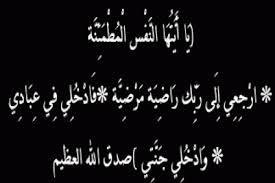 (يَا أَيَّتُهَا النَّفْسُ الْمُطْمَئِنَّة
* ارْجِعِي إِلَى رَبِّكِ رَاضِيَة مَرْضِيَّة * فَادْخُلِي فِي عِبَادِي
* وَادْخُلِي جَنَّتِي ) صدق الله العظيم